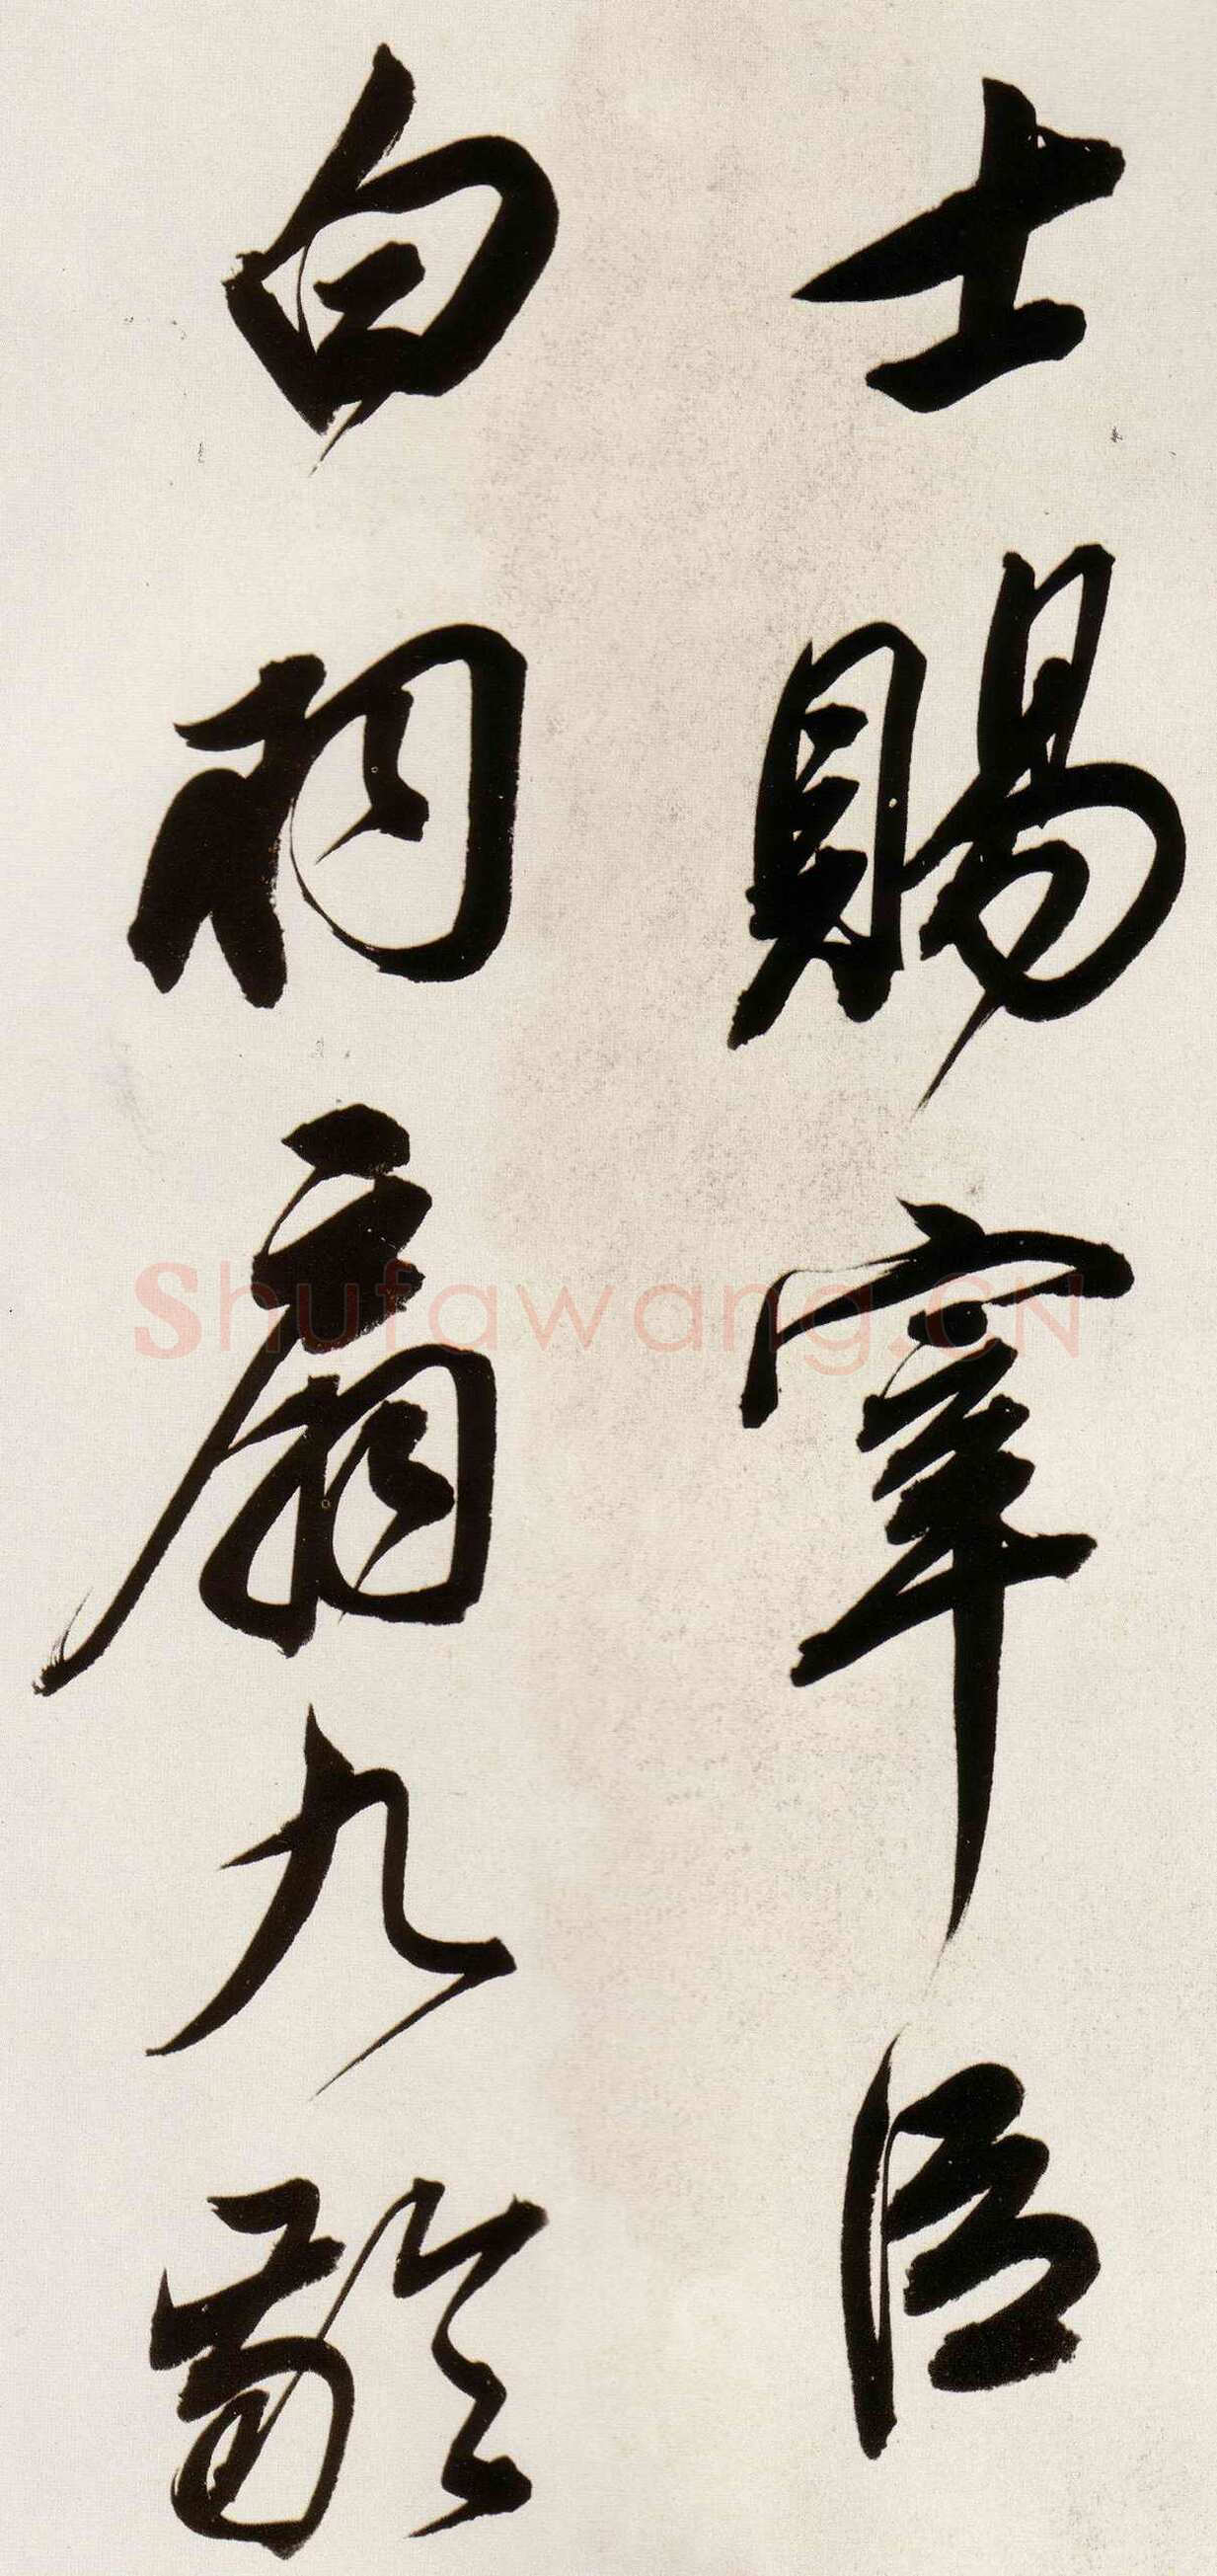 士賜宰臣
白羽扇九齡
Shufawang.CN